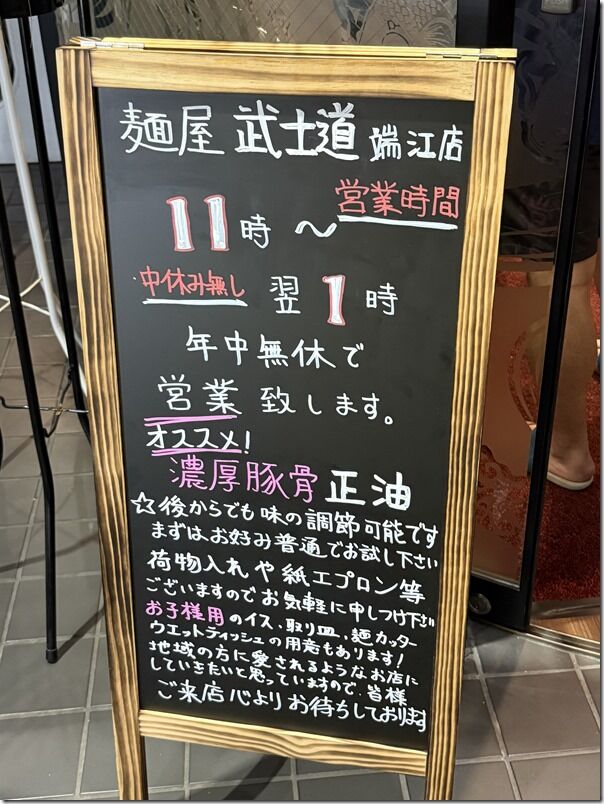 麺屋 武士道 端江店
営業時間
11時〜
中休み無し 翌1時
年中無休で
営業致します。
オススメ!
濃厚豚骨 正油
☆後からでも味の調節可能です
まずはお好み普通でお試し下さい
荷物入れや紙エプロン等
ございますのでお気軽に申しつけ下さい
お子様用のイス・取り皿・麺カッター
ウエットティッシュの用意もあります!
地域の方に愛されるようなお店に
していきたいと思っていますので、皆様
ご来店心よりお待ちしております